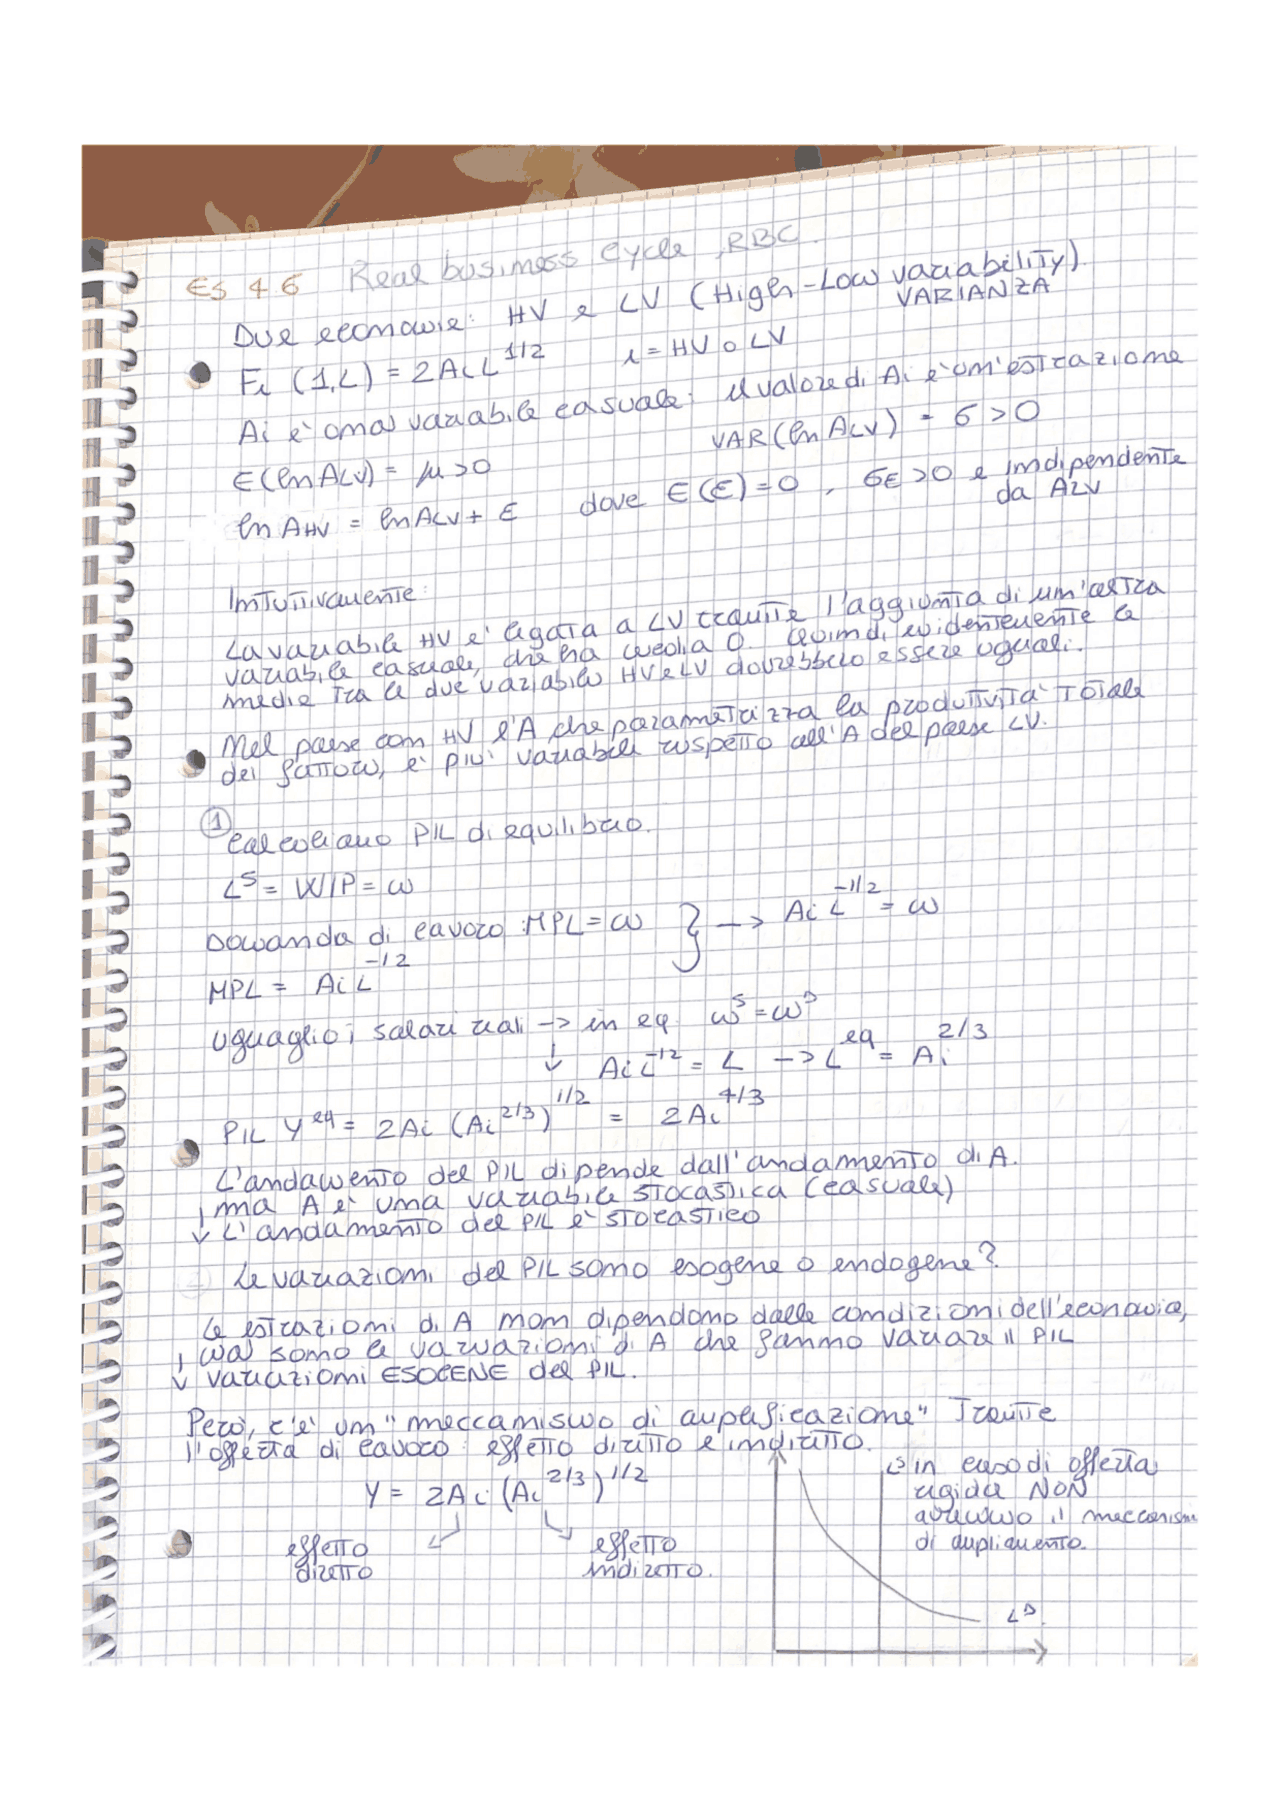 ES 4.6 Real business cycle, RBC.
Due economie: HV e LV (High-Low variability).
VARIANZA
Fi (1,L) = 2AiL^1/2 i = HV o LV
Ai è una variabile casuale: il valore di Ai è un'estrazione
E(ln ALV) = μ>0 VAR(ln ALV) = σ > 0
ln AHV = ln ALV + ε dove E(ε)=0, σε>0 e indipendente
da ALV
Intuitivamente:
La variabile HV è legata a LV tramite l'aggiunta di un'altra
variabile casuale, che ha media 0. Quindi, evidentemente le
medie tra le due variabili HV e LV dovrebbero essere uguali.
Nel paese con HV l'A che parametrizza la produttività totale
dei fattori, è più variabile rispetto all'A del paese LV.
① Calcoliamo PIL di equilibrio.
L^S = W/P = ω
Domanda di lavoro: MPL = ω } --> Ai L^-1/2 = ω
MPL = Ai L^-1/2
Uguaglio i salari reali -> in eq. ω^S = ω^D
↓ Ai L^-1/2 = L -> L^eq = Ai^2/3
PIL Y^eq = 2Ai (Ai^2/3)^1/2 = 2Ai^4/3
L'andamento del PIL dipende dall'andamento di A.
ma A è una variabile stocastica (casuale)
↓ L'andamento del PIL è stocastico
② Le variazioni del PIL sono esogene o endogene?
Le estrazioni di A non dipendono dalle condizioni dell'economia,
ma sono le variazioni di A che fanno variare il PIL
↓ variazioni ESOGENE del PIL.
Però, c'è un "meccanismo di amplificazione" tramite
l'offerta di lavoro: effetto diretto e indiretto.
Y = 2Ai (Ai^2/3)^1/2
effetto diretto
effetto indiretto.
in caso di offerta
rigida NON
avremmo il meccanism
di ampliamento.
L^D